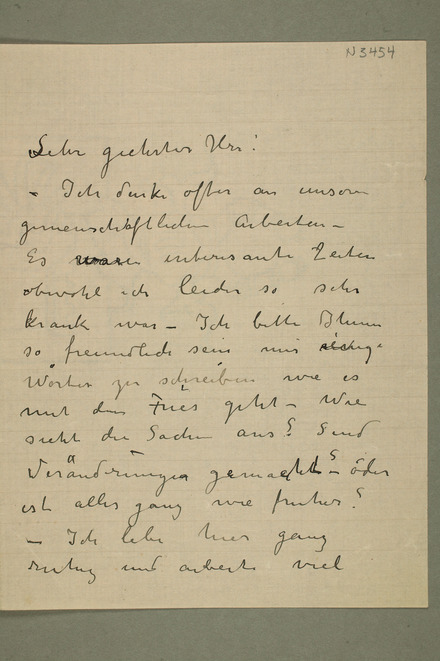 N 3454
Sehr geehrter Herr!
- Ich denke öfter an unsere
gemeinschaftlichen Arbeiten -
Es waren interesante Zeiten
obwohl ich leider so sehr
krank war - Ich bitte Ihnen
so freundlich sein mir einige
Wörter zu schreiben wie es
mit dem Fries geht - Wie
sieht die Sachen aus? Sind
Veränderungen gemacht? - oder
ist alles ganz wie früher?
- Ich lebe hier ganz
ruhig und arbeite viel